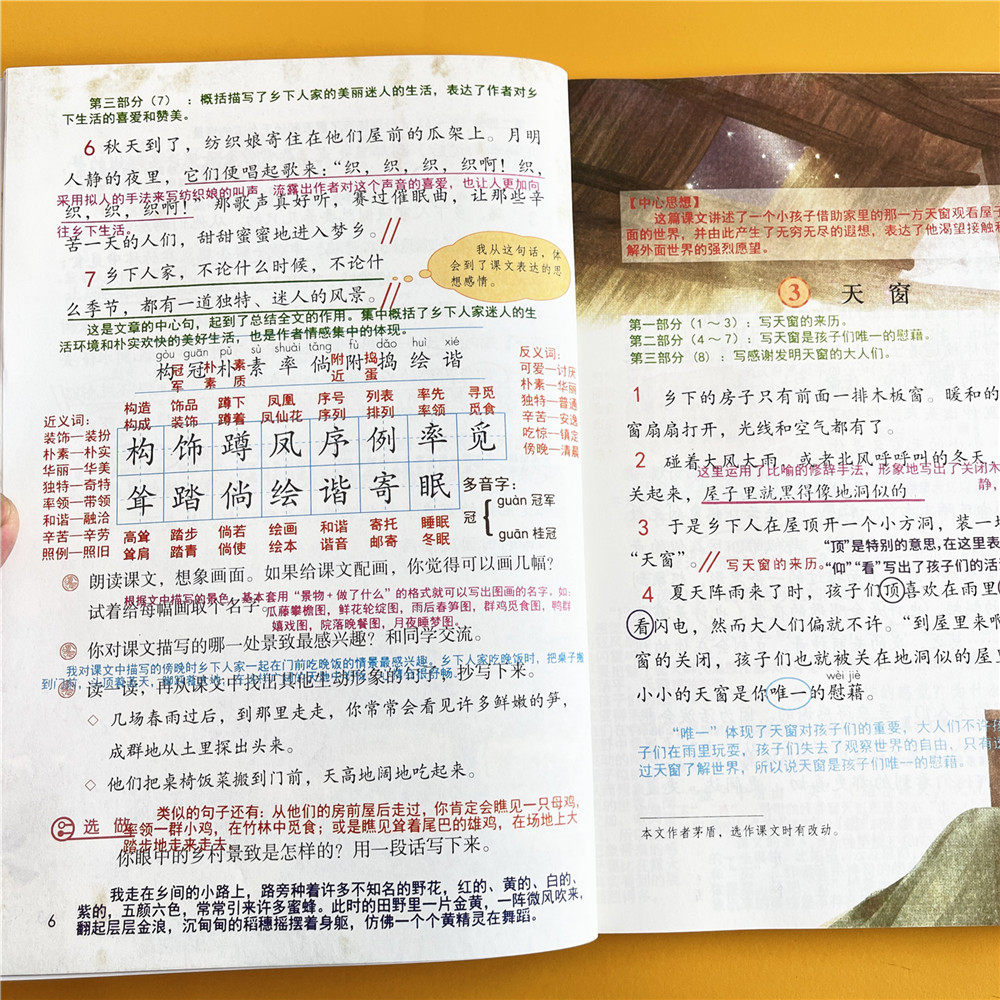 第三部分（7）：概括描写了乡下人家的美丽迷人的生活，表达了作者对乡
下生活的喜爱和赞美。
6 秋天到了，纺织娘寄住在他们屋前的瓜架上。月明
人静的夜里，它们便唱起歌来：“织，织，织，织啊！织，
采用拟人的手法来写纺织娘的叫声，流露出作者对这个声音的喜爱，也让人更加向
织，织，织啊！”那歌声真好听，赛过催眠曲，让那些辛
往乡下生活。
苦一天的人们，甜甜蜜蜜地进入梦乡。
我从这句话，体
会到了课文表达的思
想感情。
7 乡下人家，不论什么时候，不论什
么季节，都有一道独特、迷人的风景。
这是文章的中心句，起到了总结全文的作用。集中概括了乡下人家迷人的生
活环境和朴实欢快的美好生活，也是作者情感集中的体现。
gòu guān pǔ sù shuài tǎng fù dǎo huì xié
构 冠 朴 素 率 倘 附 捣 绘 谐
冠军 朴素 素质 附近 捣蛋
反义词：
可爱—讨厌
朴素—华丽
独特—普通
辛苦—安逸
吃惊—镇定
傍晚—清晨
近义词：
装饰—装扮
朴素—朴实
华丽—华美
独特—奇特
率领—带领
和谐—融洽
辛苦—辛劳
照例—照旧
构造 饰品 蹲下 凤凰 序号 列表 率先 寻觅
构成 装饰 蹲着 凤仙花 序列 排列 率领 觅食
构 饰 蹲 凤 序 例 率 觅
耸 踏 倘 绘 谐 寄 眠
高耸 踏步 倘若 绘画 和谐 寄托 睡眠
耸肩 踏青 倘使 绘本 谐音 邮寄 冬眠
多音字：
冠
guàn 冠军
guān 桂冠
朗读课文，想象画面。如果给课文配画，你觉得可以画几幅？
根据文中描写的景色，基本套用“景物+做了什么”的格式就可以写出图画的名字，如：
试着给每幅画取个名字。
瓜藤攀檐图，鲜花轮绽图，雨后春笋图，群鸡觅食图，鸭群
嬉戏图，院落晚餐图，月夜睡梦图。
你对课文描写的哪一处景致最感兴趣？和同学交流。
我对课文中描写的傍晚时乡下人家一起在门前吃晚饭的情景最感兴趣。乡下人家吃晚饭时，把桌子搬
读一读，再从课文中找出其他生动形象的句子，抄写下来。
◇ 几场春雨过后，到那里走走，你常常会看见许多鲜嫩的笋，
成群地从土里探出头来。
◇ 他们把桌椅饭菜搬到门前，天高地阔地吃起来。
类似的句子还有：从他们的房前屋后走过，你肯定会瞧见一只母鸡，
选做
率领一群小鸡，在竹林中觅食；或是瞧见耸着尾巴的雄鸡，在场地上大
踏步地走来走去。
你眼中的乡村景致是怎样的？用一段话写下来。
我走在乡间的小路上，路旁种着许多不知名的野花，红的、黄的、白的、
紫的，五颜六色，常常引来许多蜜蜂。此时的田野里一片金黄，一阵微风吹来，
翻起层层金浪，沉甸甸的稻穗摇摆着身躯，仿佛一个个黄精灵在舞蹈。
6
【中心思想】
这篇课文讲述了一个小孩子借助家里的那一方天窗观看屋
面的世界，并由此产生了无穷无尽的遐想，表达了他渴望接触和
解外面世界的强烈愿望。
3 天窗
第一部分（1～3）：写天窗的来历。
第二部分（4～7）：写天窗是孩子们唯一的慰藉。
第三部分（8）：写感谢发明天窗的大人们。
1 乡下的房子只有前面一排木板窗。暖和的
窗扇扇打开，光线和空气都有了。
2 碰着大风大雨，或者北风呼呼叫的冬天，
这里运用了比喻的修辞手法，形象地写出了关闭木
关起来，屋子里就黑得像地洞似的
静，
3 于是乡下人在屋顶开一个小方洞，装一块
“天窗”。
写天窗的来历。
“顶”是特别的意思，在这里表
“仰”“看”写出了孩子们的活
4 夏天阵雨来了时，孩子们顶喜欢在雨里
看闪电，然而大人们偏就不许。“到屋里来啊
窗的关闭，孩子们也就被关在地洞似的屋里
wèi jiè
小小的天窗是你唯一的慰藉。
“唯一”体现了天窗对孩子们的重要，大人们不许孩
子们在雨里玩耍，孩子们失去了观察世界的自由，只有
过天窗了解世界，所以说天窗是孩子们唯一的慰藉。
本文作者茅盾，选作课文时有改动。